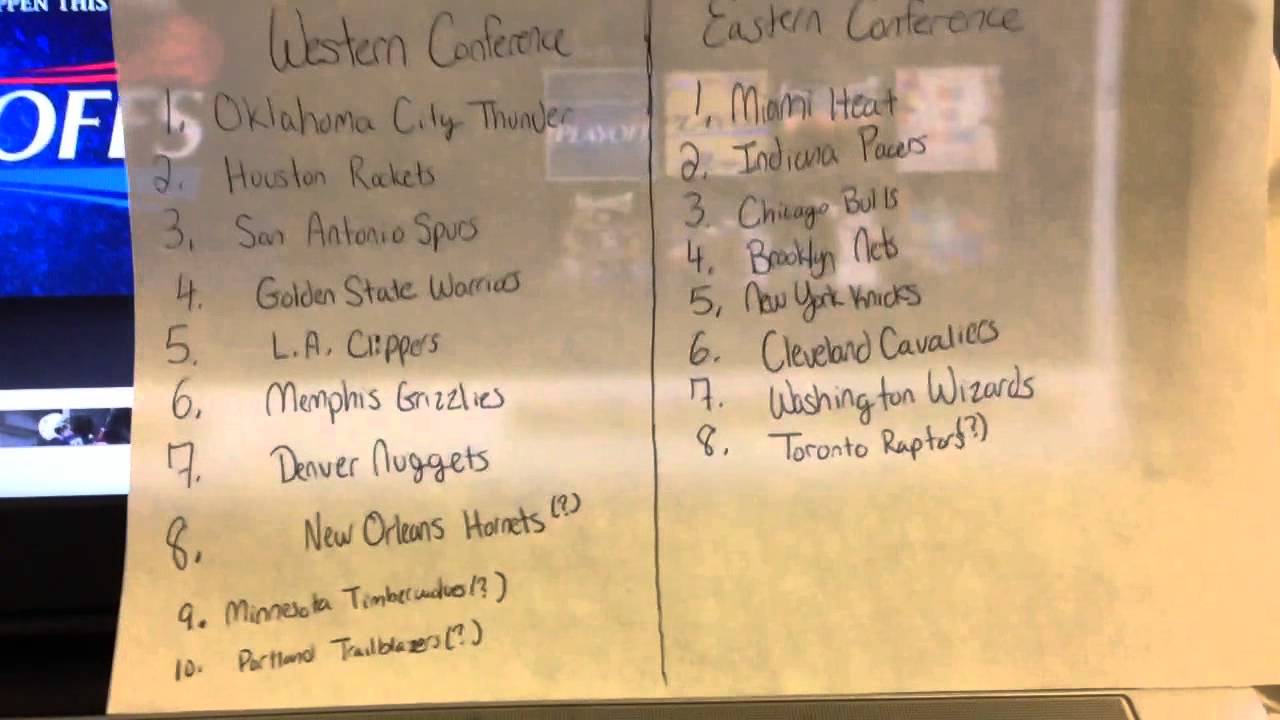 PPEN THIS
OFFS
PLAYOFF
Western Conference
1. Oklahoma City Thunder
2. Houston Rockets
3. San Antonio Spurs
4. Golden State Warriors
5. L.A. Clippers
6. Memphis Grizzlies
7. Denver Nuggets
8. New Orleans Hornets (?)
9. Minnesota Timberwolves (?)
10. Portland Trailblazers (?)
Eastern Conference
1. Miami Heat
2. Indiana Pacers
3. Chicago Bulls
4. Brooklyn Nets
5, New York Knicks
6. Cleveland Cavaliers
7. Washington Wizards
8. Toronto Raptors (?)